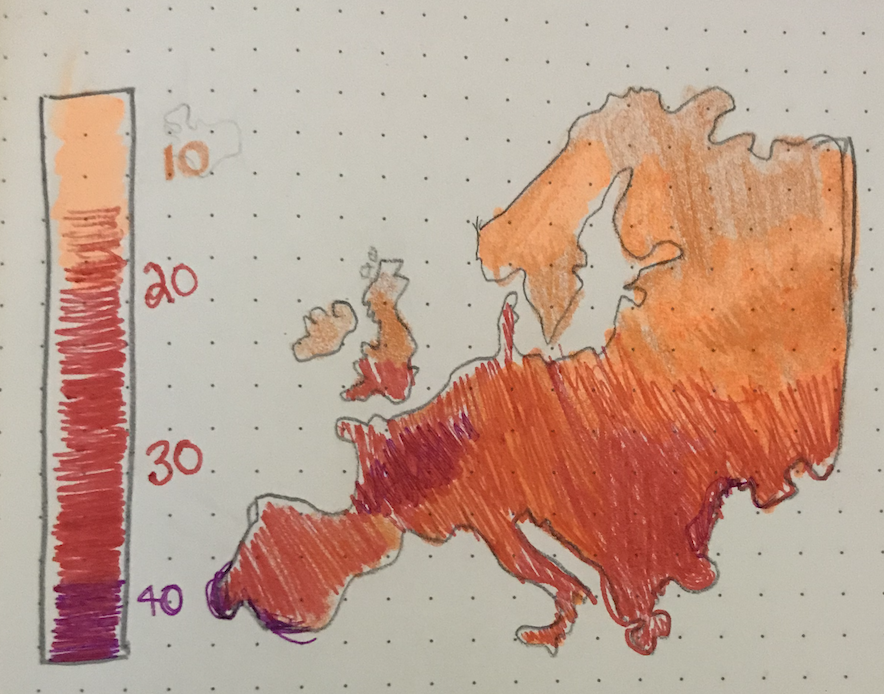 10
20
30
40